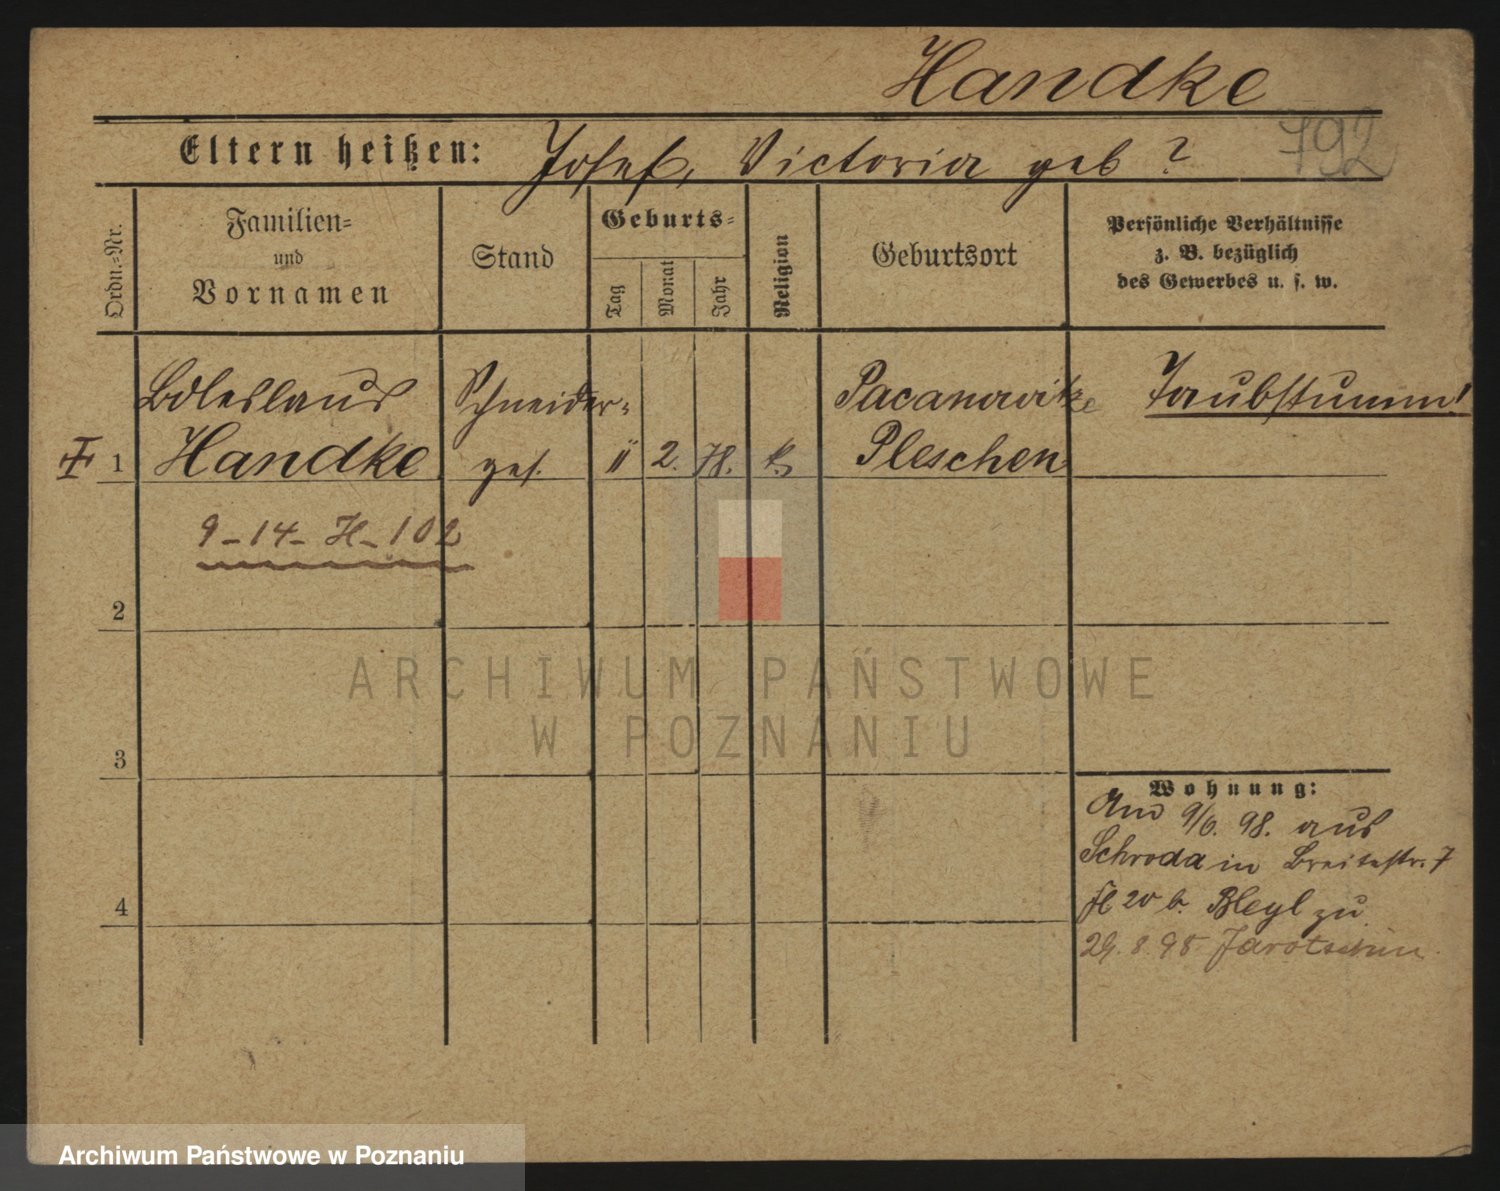 Handke
792
Eltern heißen: Josef, Victoria geb ?
Ordn.=Nr.
Familien=
und
Vornamen
Stand
Geburts=
Tag
Monat
Jahr
Religion
Geburtsort
Persönliche Verhältnisse
z. B. bezüglich
des Gewerbes u. s. w.
Boleslaus Schneider= Pacanowitze Taubstumm!
1 Handke ges. 11 2. 78. k. Pleschen
9-14-H-102
2
3
4
Wohnung:
Am 9/6. 98. aus
Schroda in Breitestr. 7
20 b. Bleyl zu
29. 8. 98 Jarotschin
ARCHIWUM PAŃSTWOWE
W POZNANIU
Archiwum Państwowe w Poznaniu